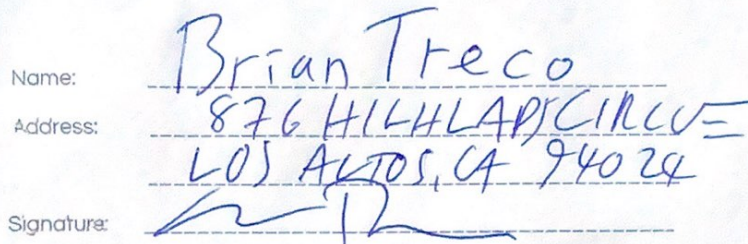 Name: Brian Treco
Address: 876 HIGHLADS CIRCLE
LOS ALTOS, CA 94024
Signature: